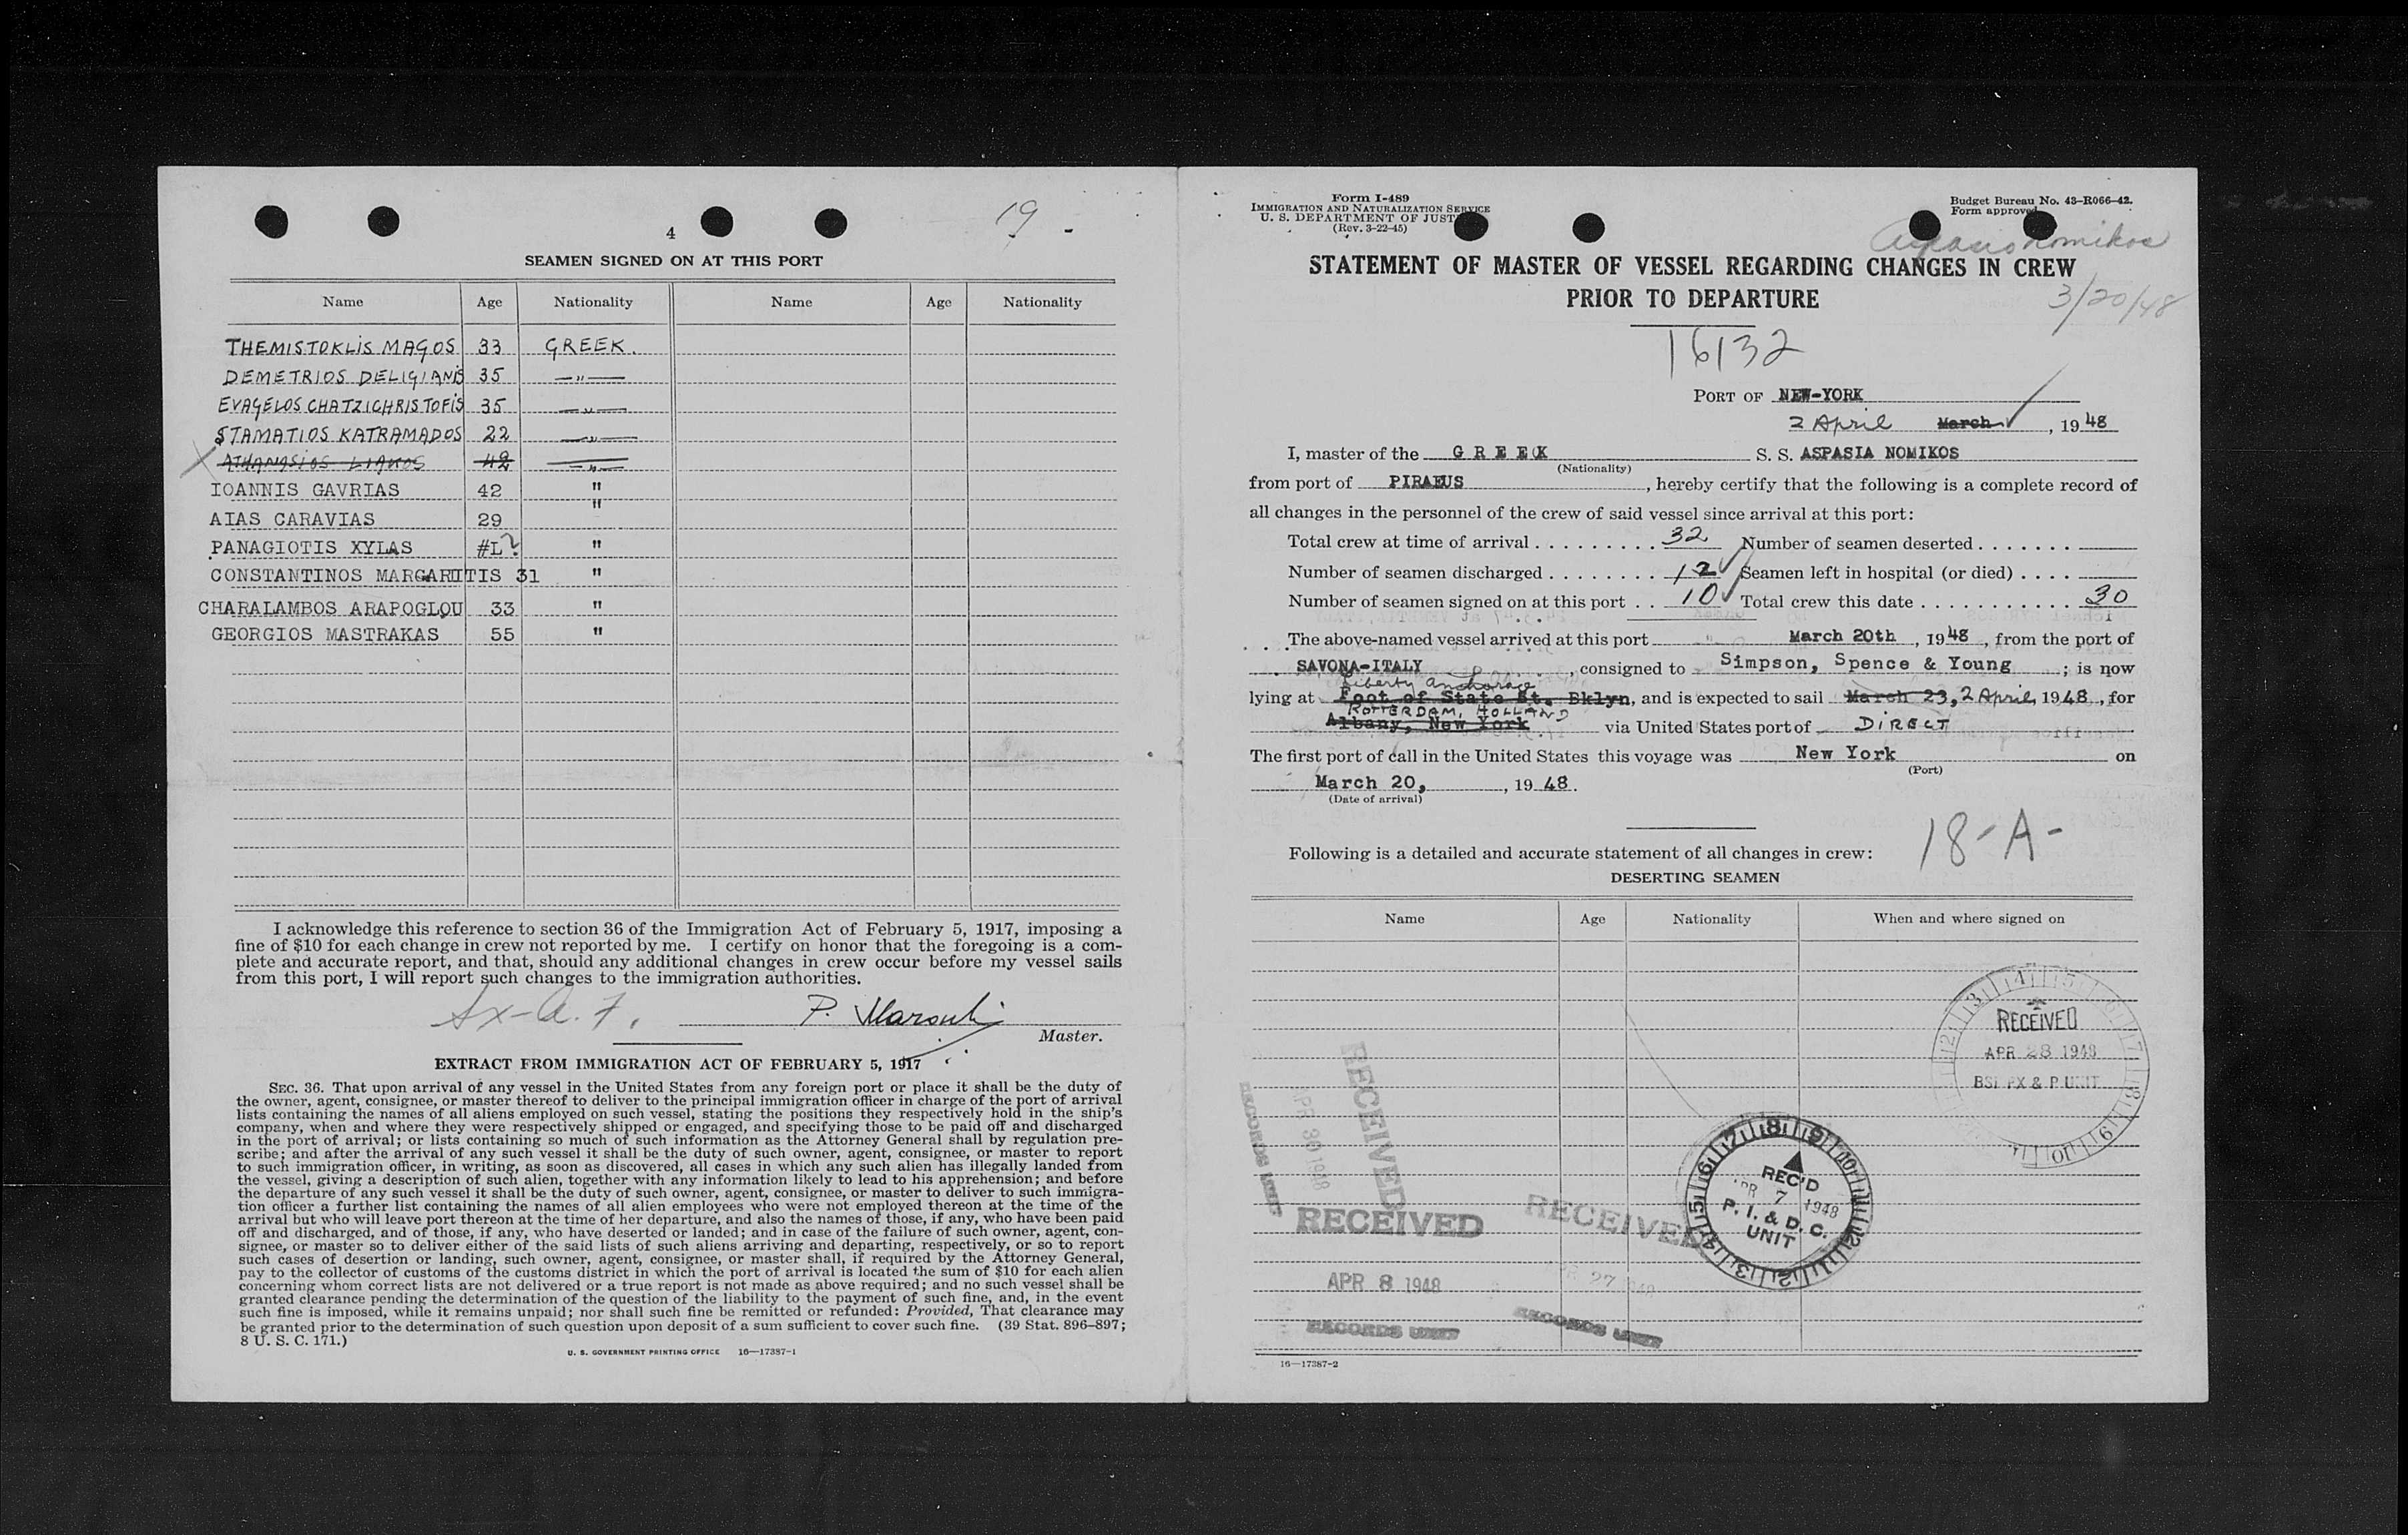 19 -
4
SEAMEN SIGNED ON AT THIS PORT
Name Age Nationality Name Age Nationality
THEMISTOKLIS MAGOS 33 GREEK.
DEMETRIOS DELIGIANIS 35 —"—
EVAGELOS CHATZICHRISTOFIS 35 —"—
STAMATIOS KATRAMADOS 22 —"—
X ATHANASIOS LIAKOS 42 —"—
IOANNIS GAVRIAS 42 "
AIAS CARAVIAS 29 "
PANAGIOTIS XYLAS #L? "
CONSTANTINOS MARGARITIS 31 "
CHARALAMBOS ARAPOGLOU 33 "
GEORGIOS MASTRAKAS 55 "
I acknowledge this reference to section 36 of the Immigration Act of February 5, 1917, imposing a
fine of $10 for each change in crew not reported by me. I certify on honor that the foregoing is a com-
plete and accurate report, and that, should any additional changes in crew occur before my vessel sails
from this port, I will report such changes to the immigration authorities.
P.
Master.
EXTRACT FROM IMMIGRATION ACT OF FEBRUARY 5, 1917
SEC. 36. That upon arrival of any vessel in the United States from any foreign port or place it shall be the duty of
the owner, agent, consignee, or master thereof to deliver to the principal immigration officer in charge of the port of arrival
lists containing the names of all aliens employed on such vessel, stating the positions they respectively hold in the ship's
company, when and where they were respectively shipped or engaged, and specifying those to be paid off and discharged
in the port of arrival; or lists containing so much of such information as the Attorney General shall by regulation pre-
scribe; and after the arrival of any such vessel it shall be the duty of such owner, agent, consignee, or master to report
to such immigration officer, in writing, as soon as discovered, all cases in which any such alien has illegally landed from
the vessel, giving a description of such alien, together with any information likely to lead to his apprehension; and before
the departure of any such vessel it shall be the duty of such owner, agent, consignee, or master to deliver to such immigra-
tion officer a further list containing the names of all alien employees who were not employed thereon at the time of the
arrival but who will leave port thereon at the time of her departure, and also the names of those, if any, who have been paid
off and discharged, and of those, if any, who have deserted or landed; and in case of the failure of such owner, agent, con-
signee, or master so to deliver either of the said lists of such aliens arriving and departing, respectively, or so to report
such cases of desertion or landing, such owner, agent, consignee, or master shall, if required by the Attorney General,
pay to the collector of customs of the customs district in which the port of arrival is located the sum of $10 for each alien
concerning whom correct lists are not delivered or a true report is not made as above required; and no such vessel shall be
granted clearance pending the determination of the question of the liability to the payment of such fine, and, in the event
such fine is imposed, while it remains unpaid; nor shall such fine be remitted or refunded: Provided, That clearance may
be granted prior to the determination of such question upon deposit of a sum sufficient to cover such fine. (39 Stat. 896–897;
8 U. S. C. 171.)
U. S. GOVERNMENT PRINTING OFFICE 16—17387-1
Form I-489
IMMIGRATION AND NATURALIZATION SERVICE
U. S. DEPARTMENT OF JUST
(Rev. 3-22-45)
Budget Bureau No. 43-R066-42.
Form approved
Aspasia Nomikos
STATEMENT OF MASTER OF VESSEL REGARDING CHANGES IN CREW
PRIOR TO DEPARTURE
3/20/48
16132
PORT OF NEW-YORK
2 April March, 19 48
I, master of the GREEK S. S. ASPASIA NOMIKOS
(Nationality)
from port of PIRAEUS, hereby certify that the following is a complete record of
all changes in the personnel of the crew of said vessel since arrival at this port:
Total crew at time of arrival . . . . . . . . . 32 Number of seamen deserted . . . . . . .
Number of seamen discharged . . . . . . . . 12 Seamen left in hospital (or died) . . . .
Number of seamen signed on at this port . . 10 Total crew this date . . . . . . . . . . . . 30
The above-named vessel arrived at this port March 20th, 19 48, from the port of
SAVONA-ITALY, consigned to Simpson, Spence & Young; is now
Liberty Anchorage
lying at Foot of State St. Bklyn, and is expected to sail March 23, 2 April, 19 48, for
ROTTERDAM, HOLLAND
Albany, New York via United States port of DIRECT
The first port of call in the United States this voyage was New York on
(Port)
March 20, 19 48.
(Date of arrival)
18-A-
Following is a detailed and accurate statement of all changes in crew:
DESERTING SEAMEN
Name Age Nationality When and where signed on
RECEIVED
APR 28 1948
BSI EX & P UNIT
RECEIVED
APR 30 1948
RECORDS UNIT
REC'D
APR 7 1948
P. I. & D. C.
UNIT
RECEIVED
APR 8 1948
RECORDS UNIT
RECEIVED
APR 27 1948
RECORDS UNIT
16—17387-2